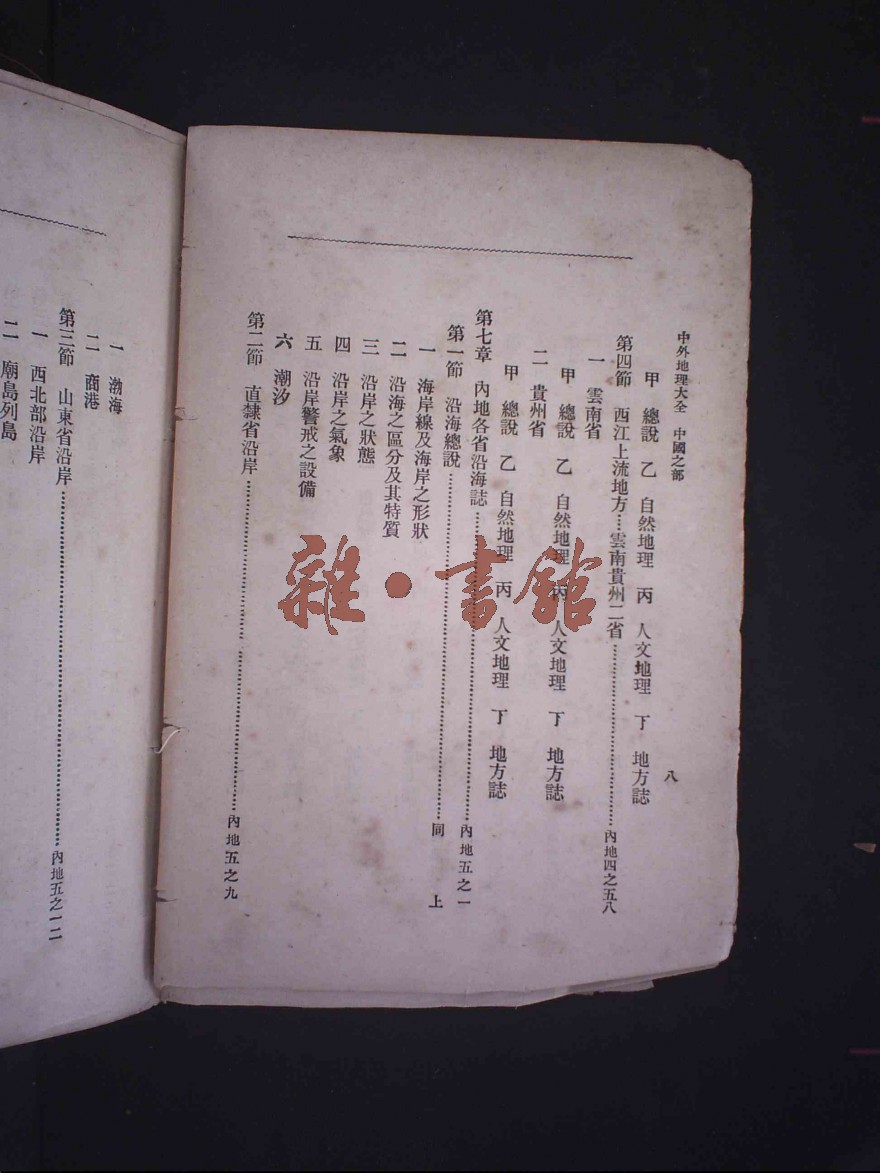 中外地理大全　中國之部
八
甲　總說　乙　自然地理　丙　人文地理　丁　地方誌
第四節　西江上流地方……雲南貴州二省……內地四之五八
一　雲南省
甲　總說　乙　自然地理　丙　人文地理　丁　地方誌
二　貴州省
甲　總說　乙　自然地理　丙　人文地理　丁　地方誌
第七章　內地各省沿海誌……內地五之一
第一節　沿海總說……同上
一　海岸線及海岸之形狀
二　沿海之區分及其特質
三　沿岸之狀態
四　沿岸之氣象
五　沿岸警戒之設備
六　潮汐
第二節　直隸省沿岸……內地五之九
一　渤海
二　商港
第三節　山東省沿岸……內地五之一二
一　西北部沿岸
二　廟島列島
雜·書館